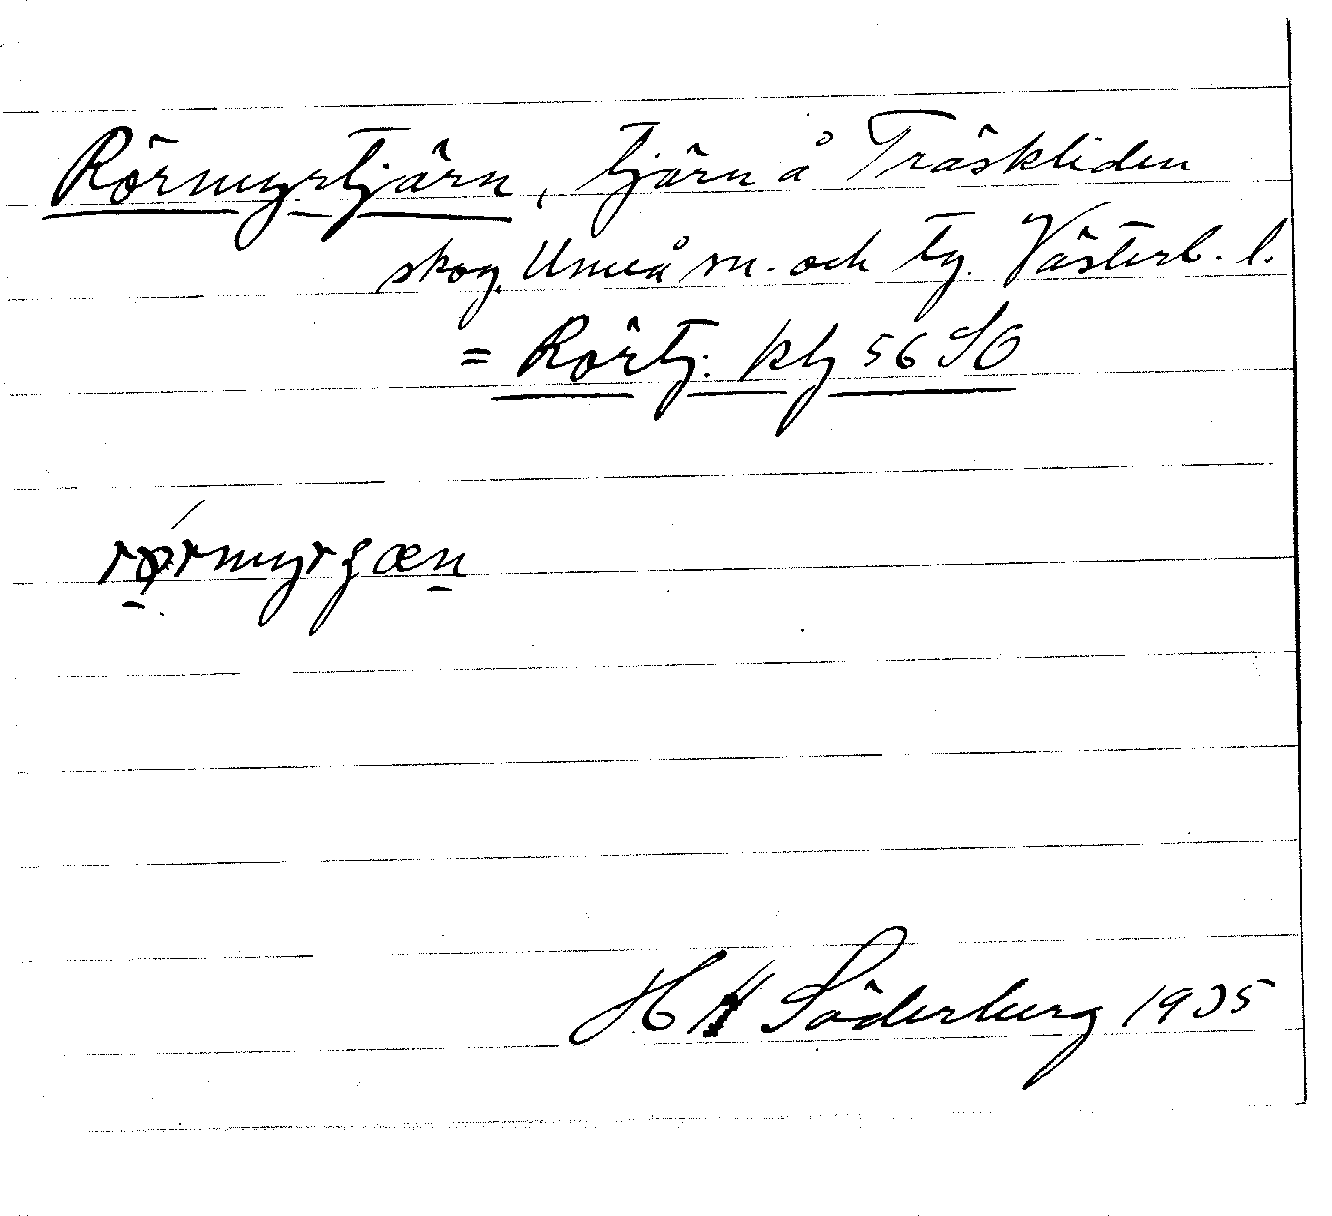 Rörmyrtjärn, tjärn å Träskliden
skog, Umeå sn. och tg. Västerb. l.
= Rörtj. kbj 56 SO
rørmyrʒæn
H Söderberg 1935